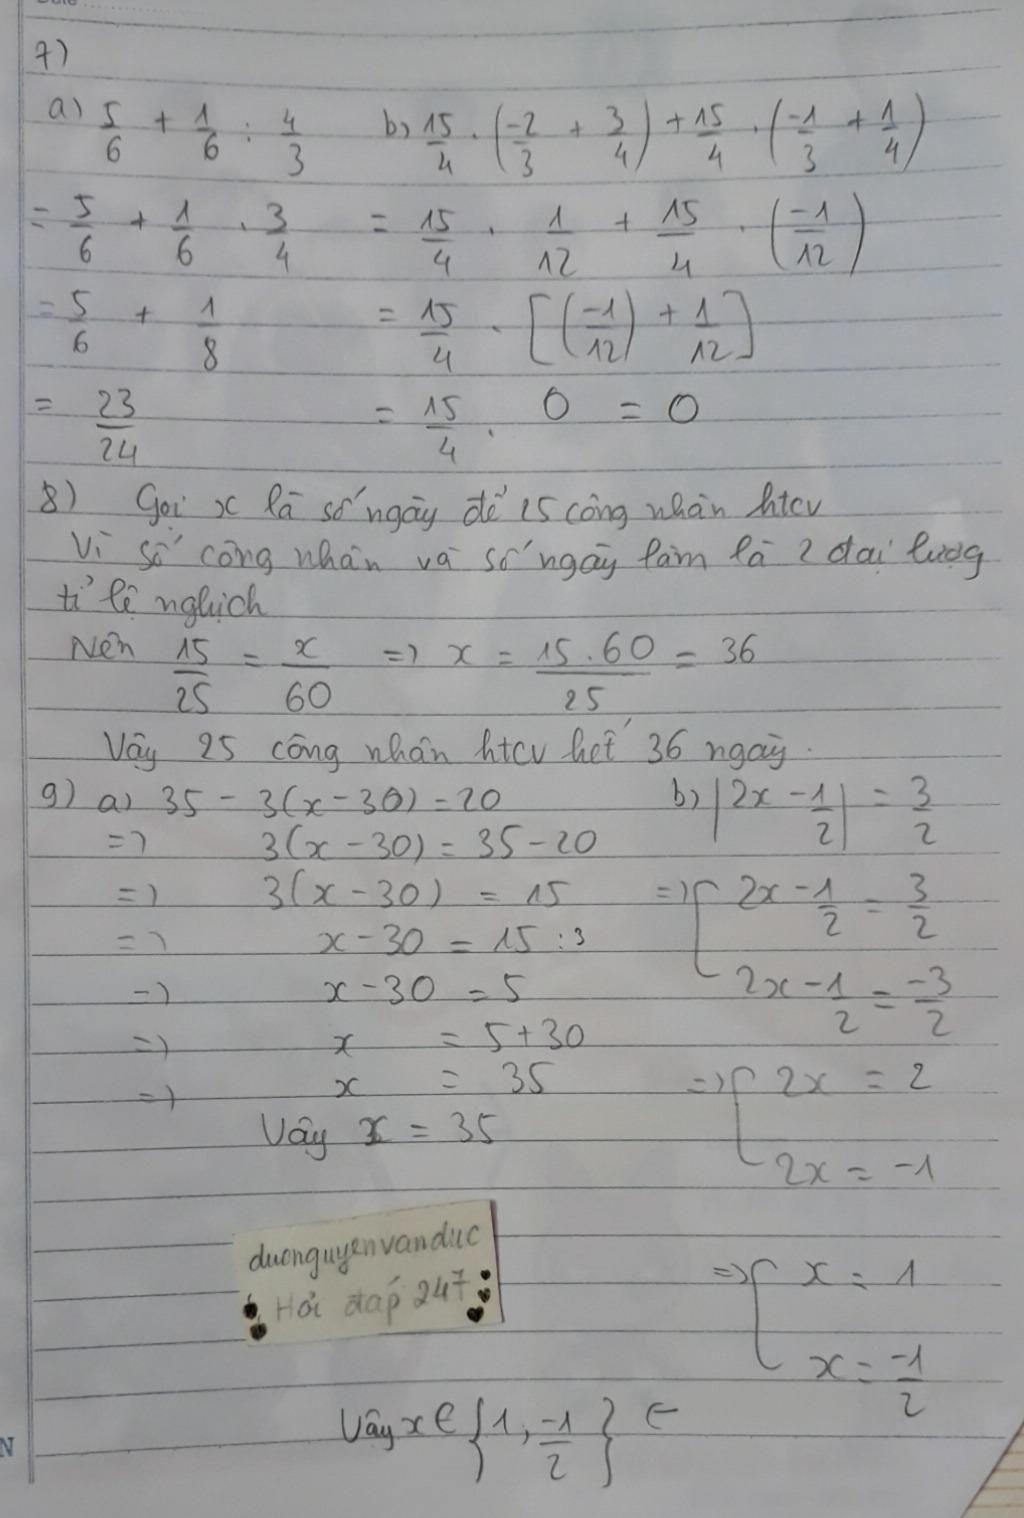 7)
a) 5/6 + 1/6 : 4/3
= 5/6 + 1/6 . 3/4
= 5/6 + 1/8
= 23/24
b) 15/4 . (-2/3 + 3/4) + 15/4 . (-1/3 + 1/4)
= 15/4 . 1/12 + 15/4 . (-1/12)
= 15/4 . [(-1/12) + 1/12]
= 15/4 . 0 = 0
8) Gọi x là số ngày để 25 công nhân htcv
Vì số công nhân và số ngày làm là 2 đại lượg
tỉ lệ nghịch
Nên 15/25 = x/60 => x = 15.60/25 = 36
Vậy 25 công nhân htcv hết 36 ngày.
9) a) 35 - 3(x-30) = 20
=> 3(x-30) = 35-20
=> 3(x-30) = 15
=> x-30 = 15 : 3
=> x-30 = 5
=> x = 5+30
=> x = 35
Vậy x = 35
b) |2x - 1/2| = 3/2
=> [ 2x - 1/2 = 3/2
2x - 1/2 = -3/2
=> [ 2x = 2
2x = -1
=> [ x = 1
x = -1/2
Vậy x ∈ {1, -1/2} ←
duonguyenvanduc
Hỏi đáp 247
N